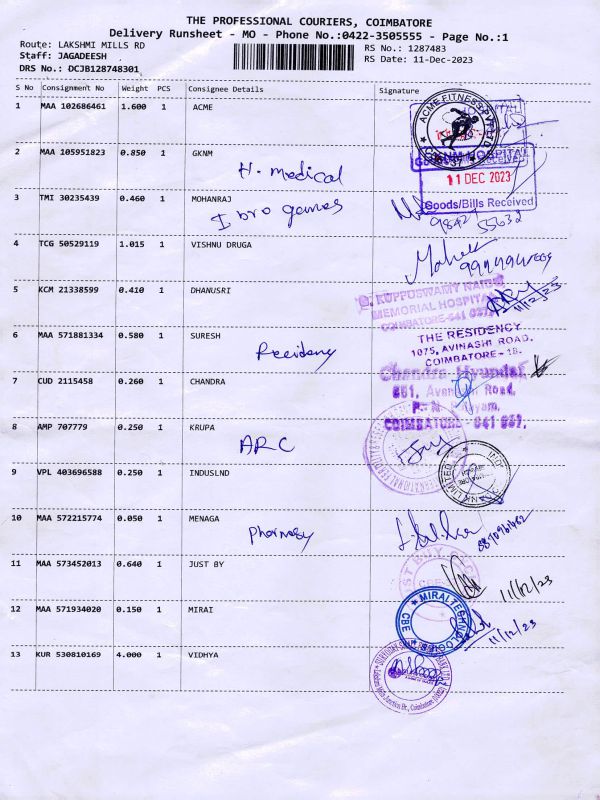 THE PROFESSIONAL COURIERS, COIMBATORE
Delivery Runsheet - MO - Phone No.:0422-3505555 - Page No.:1
Route: LAKSHMI MILLS RD
RS No.: 1287483
Staff: JAGADEESH
RS Date: 11-Dec-2023
DRS No.: DCJB128748301
S No Consignment No Weight PCS Consignee Details Signature
1 MAA 102686461 1.600 1 ACME
ACME FITNESS PVT LTD
2 MAA 105951823 0.850 1 GKNM
H. medical
HOSPITAL
11 DEC 2023
Goods/Bills Received
3 TMI 30235439 0.460 1 MOHANRAJ
Ibro games
98427
55632
4 TCG 50529119 1.015 1 VISHNU DRUGA
5 KCM 21338599 0.410 1 DHANUSRI
G. KUPPUSWAMY NAIDU
MEMORIAL HOSPITAL
COIMBATORE-641 037
11/12/23
6 MAA 571881334 0.580 1 SURESH
Recidency
THE RESIDENCY
1075, AVINASHI ROAD,
COIMBATORE - 18.
7 CUD 2115458 0.260 1 CHANDRA
Chandra Hyundai
COIMBATORE - 641 037.
8 AMP 707779 0.250 1 KRUPA
ARC
9 VPL 403696588 0.250 1 INDUSLND
10 MAA 572215774 0.050 1 MENAGA
Pharmasy
11 MAA 573452013 0.640 1 JUST BY
11/12/23
12 MAA 571934020 0.150 1 MIRAI
MIRAI TECHNOLOGIES
CBE
11/12/23
13 KUR 530810169 4.000 1 VIDHYA